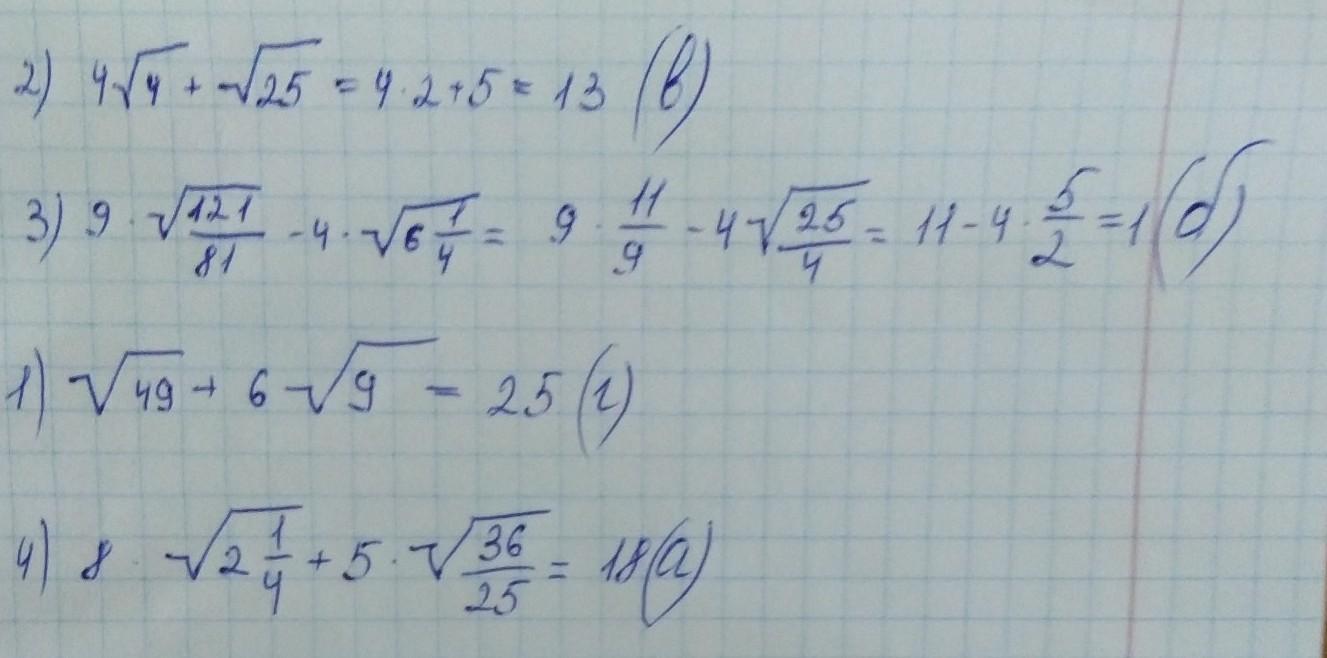 2) 4√4 + √25 = 4·2+5 = 13 (в)
3) 9·√121/81 - 4·√6 1/4 = 9·11/9 - 4√25/4 = 11-4·5/2 = 1 (б)
1) √49 + 6√9 = 25 (г)
4) 8·√2 1/4 + 5·√36/25 = 18 (а)